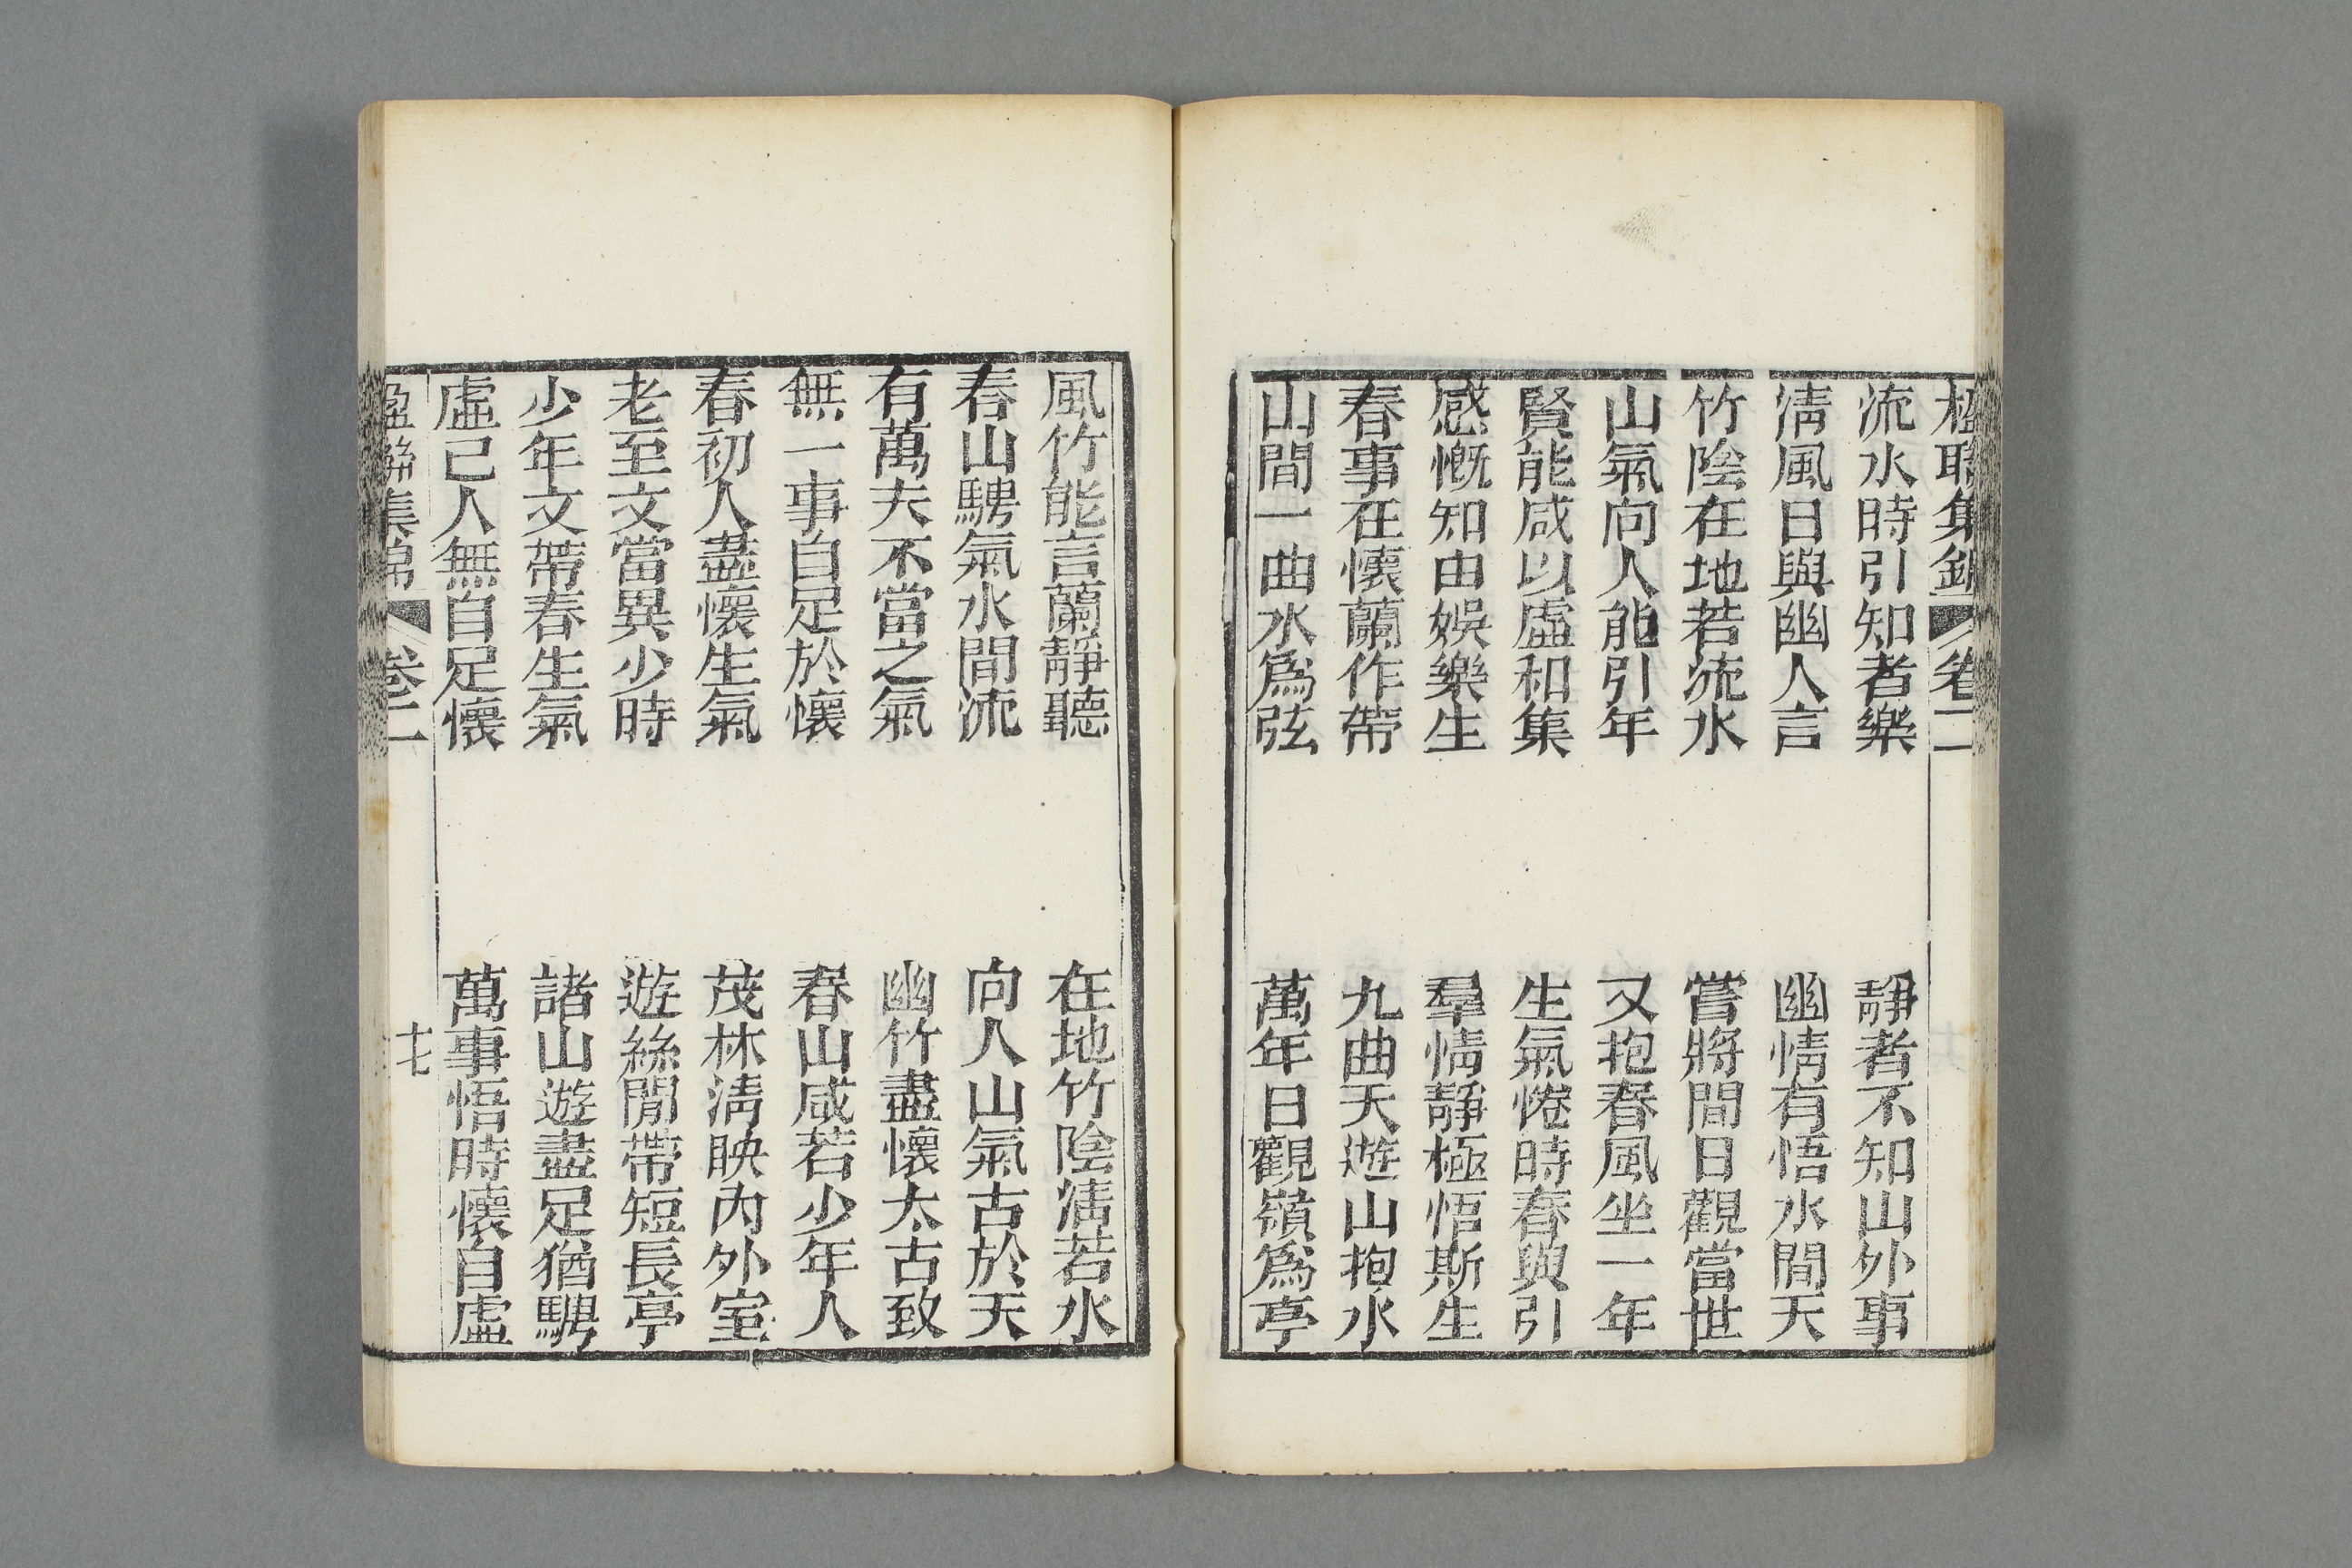 楹聯集錦 卷二
流水時引知者樂 靜者不知山外事
淸風日與幽人言 幽情有悟水閒天
竹陰在地若流水 嘗將閒日觀當世
山氣向人能引年 又抱春風坐一年
賢能咸以虛和集 生氣惓時春與引
感慨知由娛樂生 羣情靜極悟斯生
春事在懷蘭作帶 九曲天遊山抱水
山間一曲水爲弦 萬年日觀嶺爲亭
風竹能言蘭靜聽 在地竹陰淸若水
春山騁氣水間流 向人山氣古於天
有萬夫不當之氣 幽竹盡懷太古致
無一事自足於懷 春山咸若少年人
春初人盡懷生氣 茂林淸映內外室
老至文當異少時 遊絲閒帶短長亭
少年文帶春生氣 諸山遊盡足猶騁
虛己人無自足懷 萬事悟時懷自虛
楹聯集錦 卷二 十七